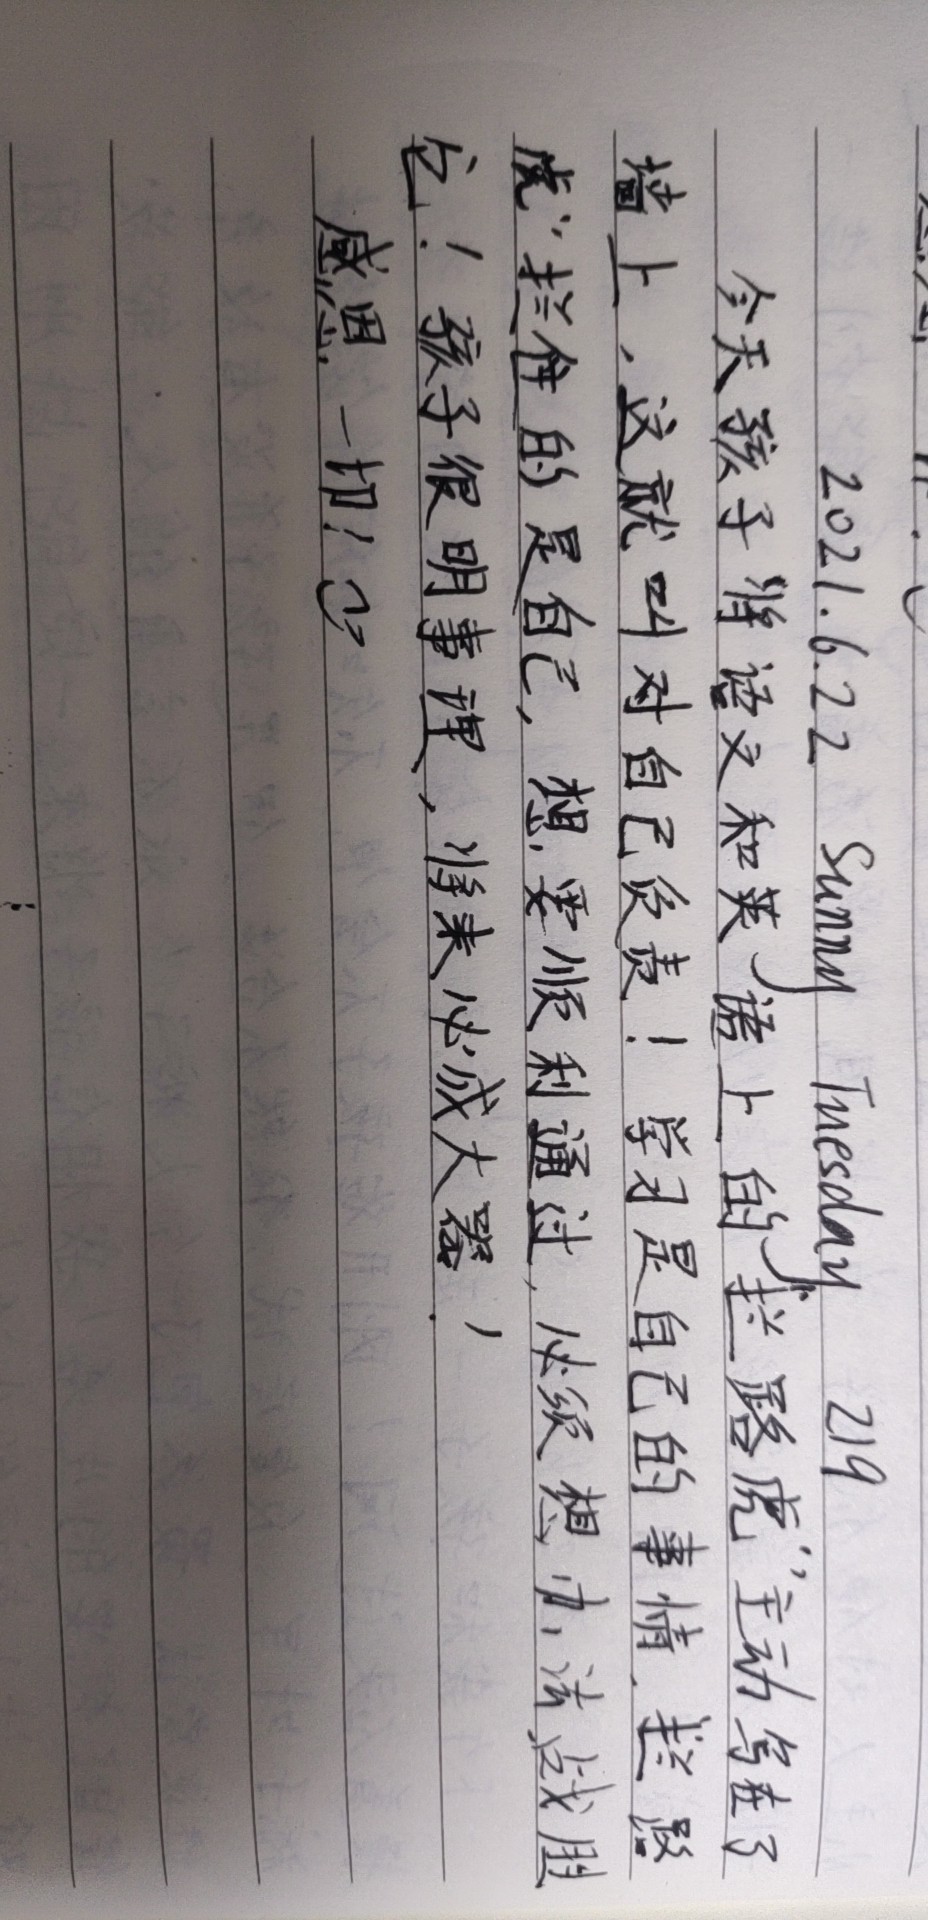 2021.6.22 Sunny Tuesday 219
今天孩子将语文和英语上的"拦路虎"主动写在了
墙上,这就叫对自己负责!学习是自己的事情,"拦路
虎"拦住的是自己,想要顺利通过,必须想办法战胜
它!孩子很明事理,将来必成大器!
感恩一切!